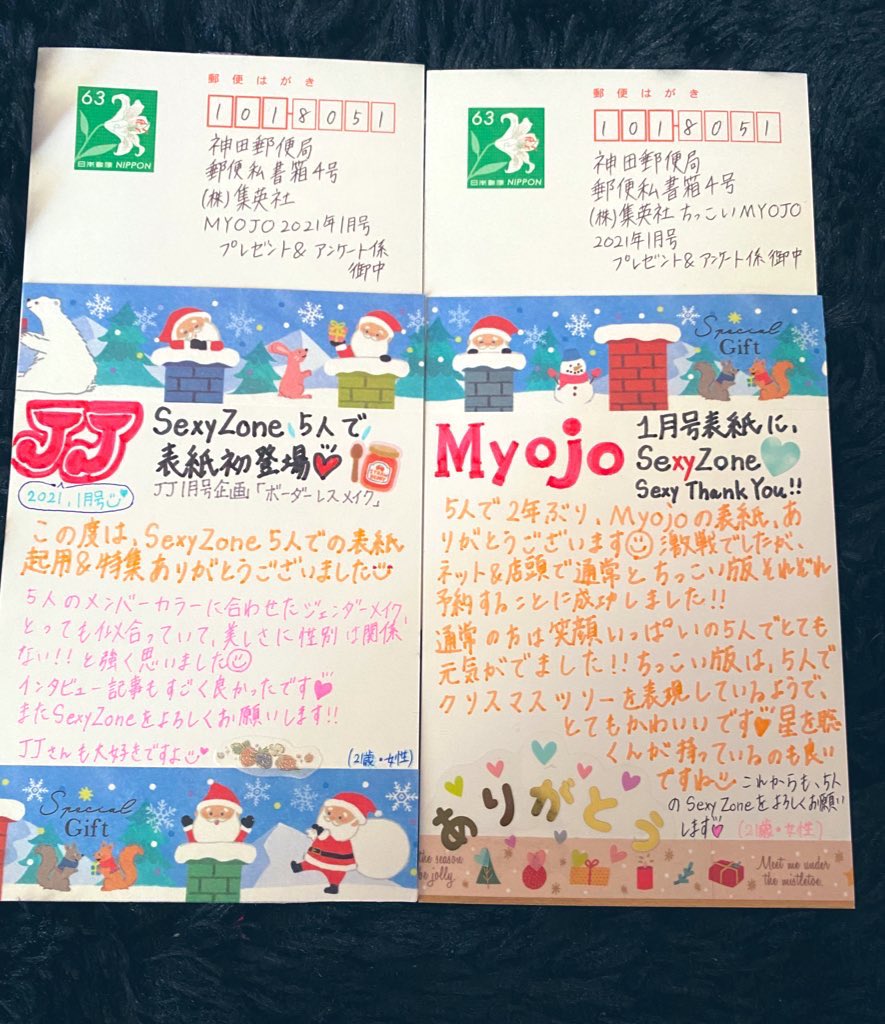 郵便はがき
63
日本郵便 NIPPON
1018051
神田郵便局
郵便私書箱4号
(株)集英社
MYOJO 2021年1月号
プレゼント& アンケート係
御中
JJ
2021.1月号
SexyZone 5人で
表紙初登場
JJ1月号企画「ボーダーレスメイク」
この度は、SexyZone 5人での表紙
起用&特集ありがとうございました
5人のメンバーカラーに合わせたジェンダーメイク、
とっても似合っていて、美しさに性別は関係
ない!!と強く思いました
インタビュー記事もすごく良かったです
またSexyZoneをよろしくお願いします!!
JJさんも大好きですよ
(21歳・女性)
Special
Gift
郵便はがき
63
日本郵便 NIPPON
1018051
神田郵便局
郵便私書箱4号
(株)集英社 ちっこいMYOJO
2021年1月号
プレゼント&アンケート係 御中
Special
Gift
Myojo
1月号表紙に、
SexyZone
Sexy Thank You!!
5人で2年ぶり、Myojoの表紙、あ
りがとうございます 激戦でしたが、
ネット&店頭で通常とちっこい版それぞれ
予約することに成功しました!!
通常の方は笑顔いっぱいの5人でとても
元気がでました!!ちっこい版は、5人で
クリスマスツリーを表現しているようで、
とてもかわいいです星を聡
くんが持っているのも良い
ですね これからも、5人
のSexy Zoneをよろしくお願い
します (21歳・女性)
ありがとう
the season
be jolly.
Meet me under
the mistletoe.